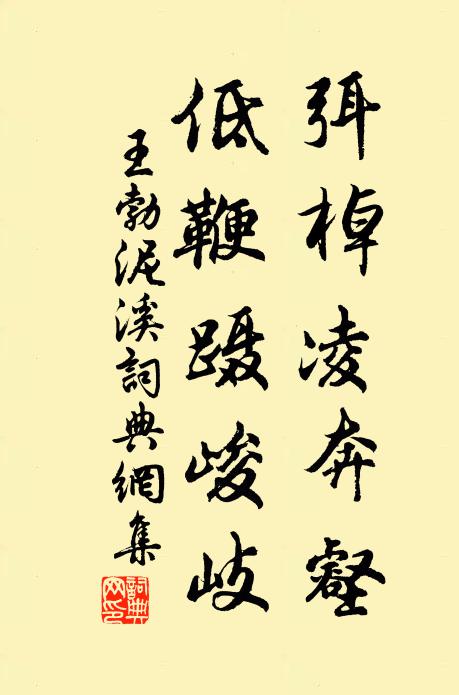 弭棹凌奔壑
低鞭蹑峻岐
王勃泥溪詞典網集
詞典网印